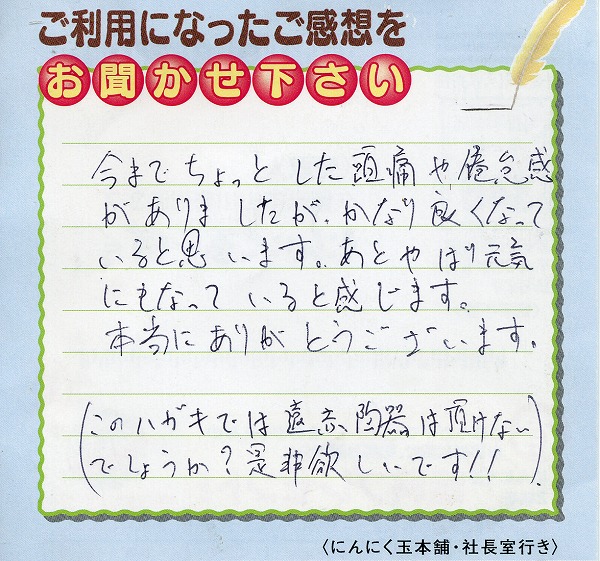 ご利用になったご感想を
お聞かせ下さい
今までちょっとした頭痛や倦怠感
がありましたが、かなり良くなって
いると思います。あとやはり元気
にもなっていると感じます。
本当にありがとうございます。
(このハガキでは遠赤陶器は頂けない
でしょうか?是非欲しいです!!)
〈にんにく玉本舗・社長室行き〉